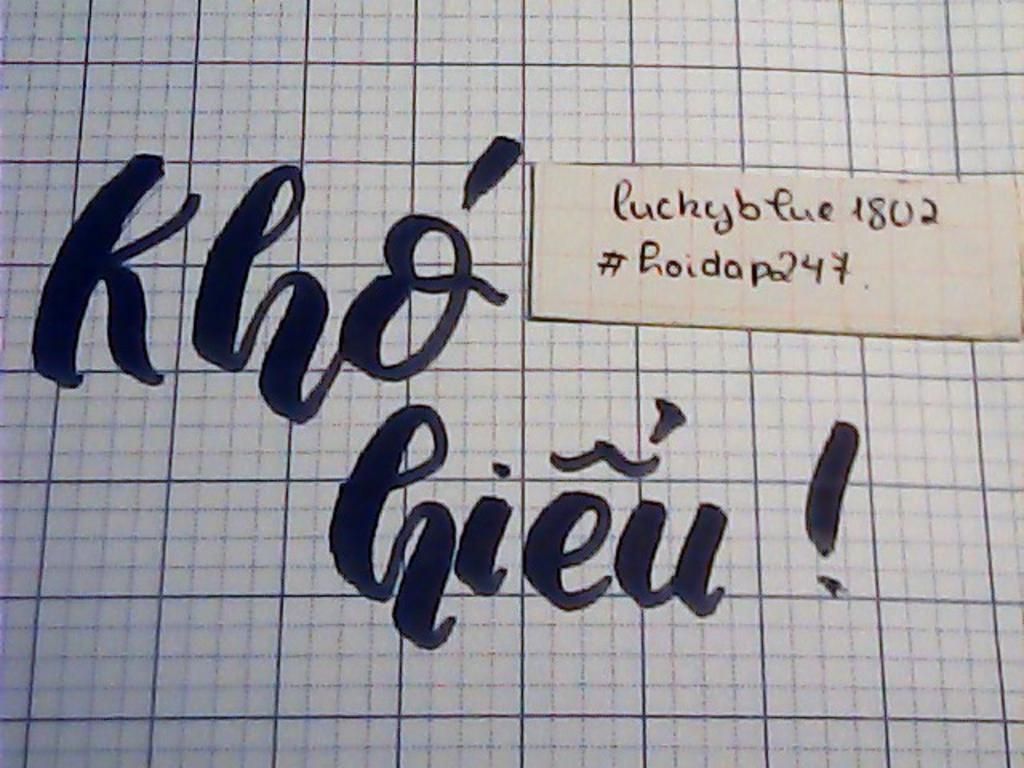 Khó
hiểu !
luckyblue 1802
#hoidap247.